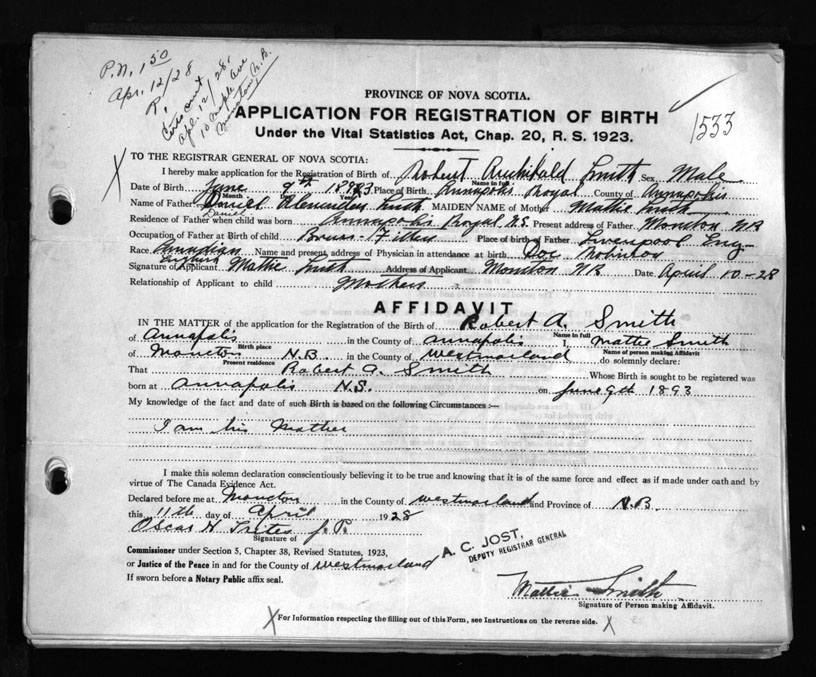 P.N. 1 50
Apr. 12/28
Apl. 12/28.
10 Maple Ave
Moncton N.B.
1533
PROVINCE OF NOVA SCOTIA.
APPLICATION FOR REGISTRATION OF BIRTH
Under the Vital Statistics Act, Chap. 20, R. S. 1923.
X TO THE REGISTRAR GENERAL OF NOVA SCOTIA:
I hereby make application for the Registration of Birth of Robert Archibald Smith Sex Male
Name in full
Date of Birth June 9th 1893 Place of Birth Annapolis Royal County of Annapolis
Month Year
Name of Father Daniel Smith MAIDEN NAME of Mother Mattie Smith
Daniel
Residence of Father when child was born Annapolis Royal N.S. Present address of Father Moncton NB
Occupation of Father at Birth of child Place of birth of Father Liverpool Eng-
Race Canadian Name and present address of Physician in attendance at birth Doc Robinson
English
Signature of Applicant Mattie Smith Address of Applicant Moncton NB Date April 10-28
Relationship of Applicant to child Mother
AFFIDAVIT
IN THE MATTER of the application for the Registration of the Birth of Robert A. Smith
Name in full
of Annapolis in the County of Annapolis I, Mattie Smith
Birth place Name of person making Affidavit
of Moncton N.B. in the County of Westmorland do solemnly declare:
Present residence
That Robert A. Smith Whose Birth is sought to be registered was
born at Annapolis N.S. on June 9th 1893
My knowledge of the fact and date of such Birth is based on the following Circumstances :—
I am his Mother
I make this solemn declaration conscientiously believing it to be true and knowing that it is of the same force and effect as if made under oath and by
virtue of The Canada Evidence Act.
Declared before me at Moncton in the County of Westmorland and Province of N.B.
this 11th day of April 1928
Oscar H Trites J.P.
Signature of
Commissioner under Section 5, Chapter 38, Revised Statutes, 1923,
A. C. JOST,
DEPUTY REGISTRAR GENERAL
or Justice of the Peace in and for the County of Westmorland
If sworn before a Notary Public affix seal.
Mattie Smith
Signature of Person making Affidavit.
X For Information respecting the filling out of this Form, see Instructions on the reverse side. X